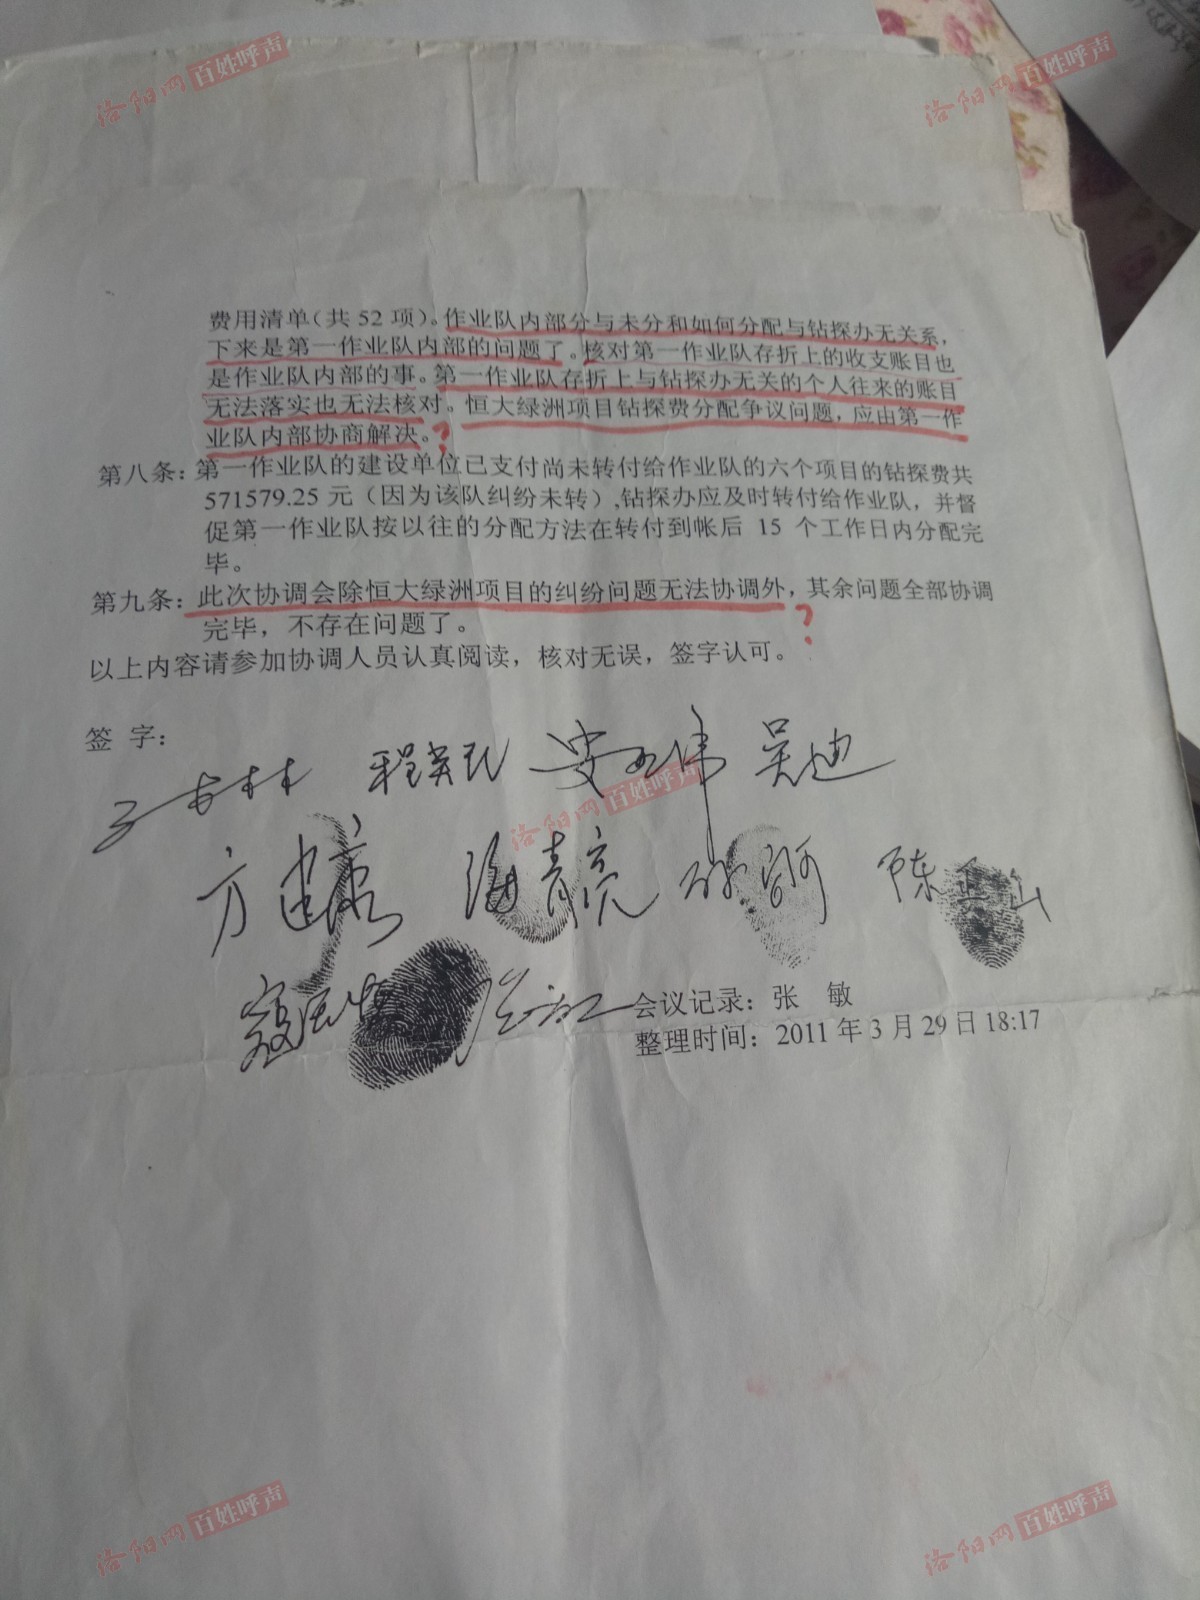 洛阳网 百姓呼声
洛阳网 百姓呼声
费用清单（共52 项）。作业队内部分与未分和如何分配与钻探办无关系，
下来是第一作业队内部的问题了。核对第一作业队存折上的收支账目也
是作业队内部的事。第一作业队存折上与钻探办无关的个人往来的账目
无法落实也无法核对。恒大绿洲项目钻探费分配争议问题，应由第一作
业队内部协商解决。?
第八条：第一作业队的建设单位已支付尚未转付给作业队的六个项目的钻探费共
571579.25 元（因为该队纠纷未转）,钻探办应及时转付给作业队，并督
促第一作业队按以往的分配方法在转付到帐后 15 个工作日内分配完
毕。
第九条：此次协调会除恒大绿洲项目的纠纷问题无法协调外，其余问题全部协调
?
完毕，不存在问题了。
以上内容请参加协调人员认真阅读，核对无误，签字认可。
签 字：
吴迪
洛阳网 百姓呼声
方建康 海青亮 陈正山
会议记录：张 敏
整理时间：2011 年 3 月 29 日 18:17
洛阳网 百姓呼声
洛阳网 百姓呼声